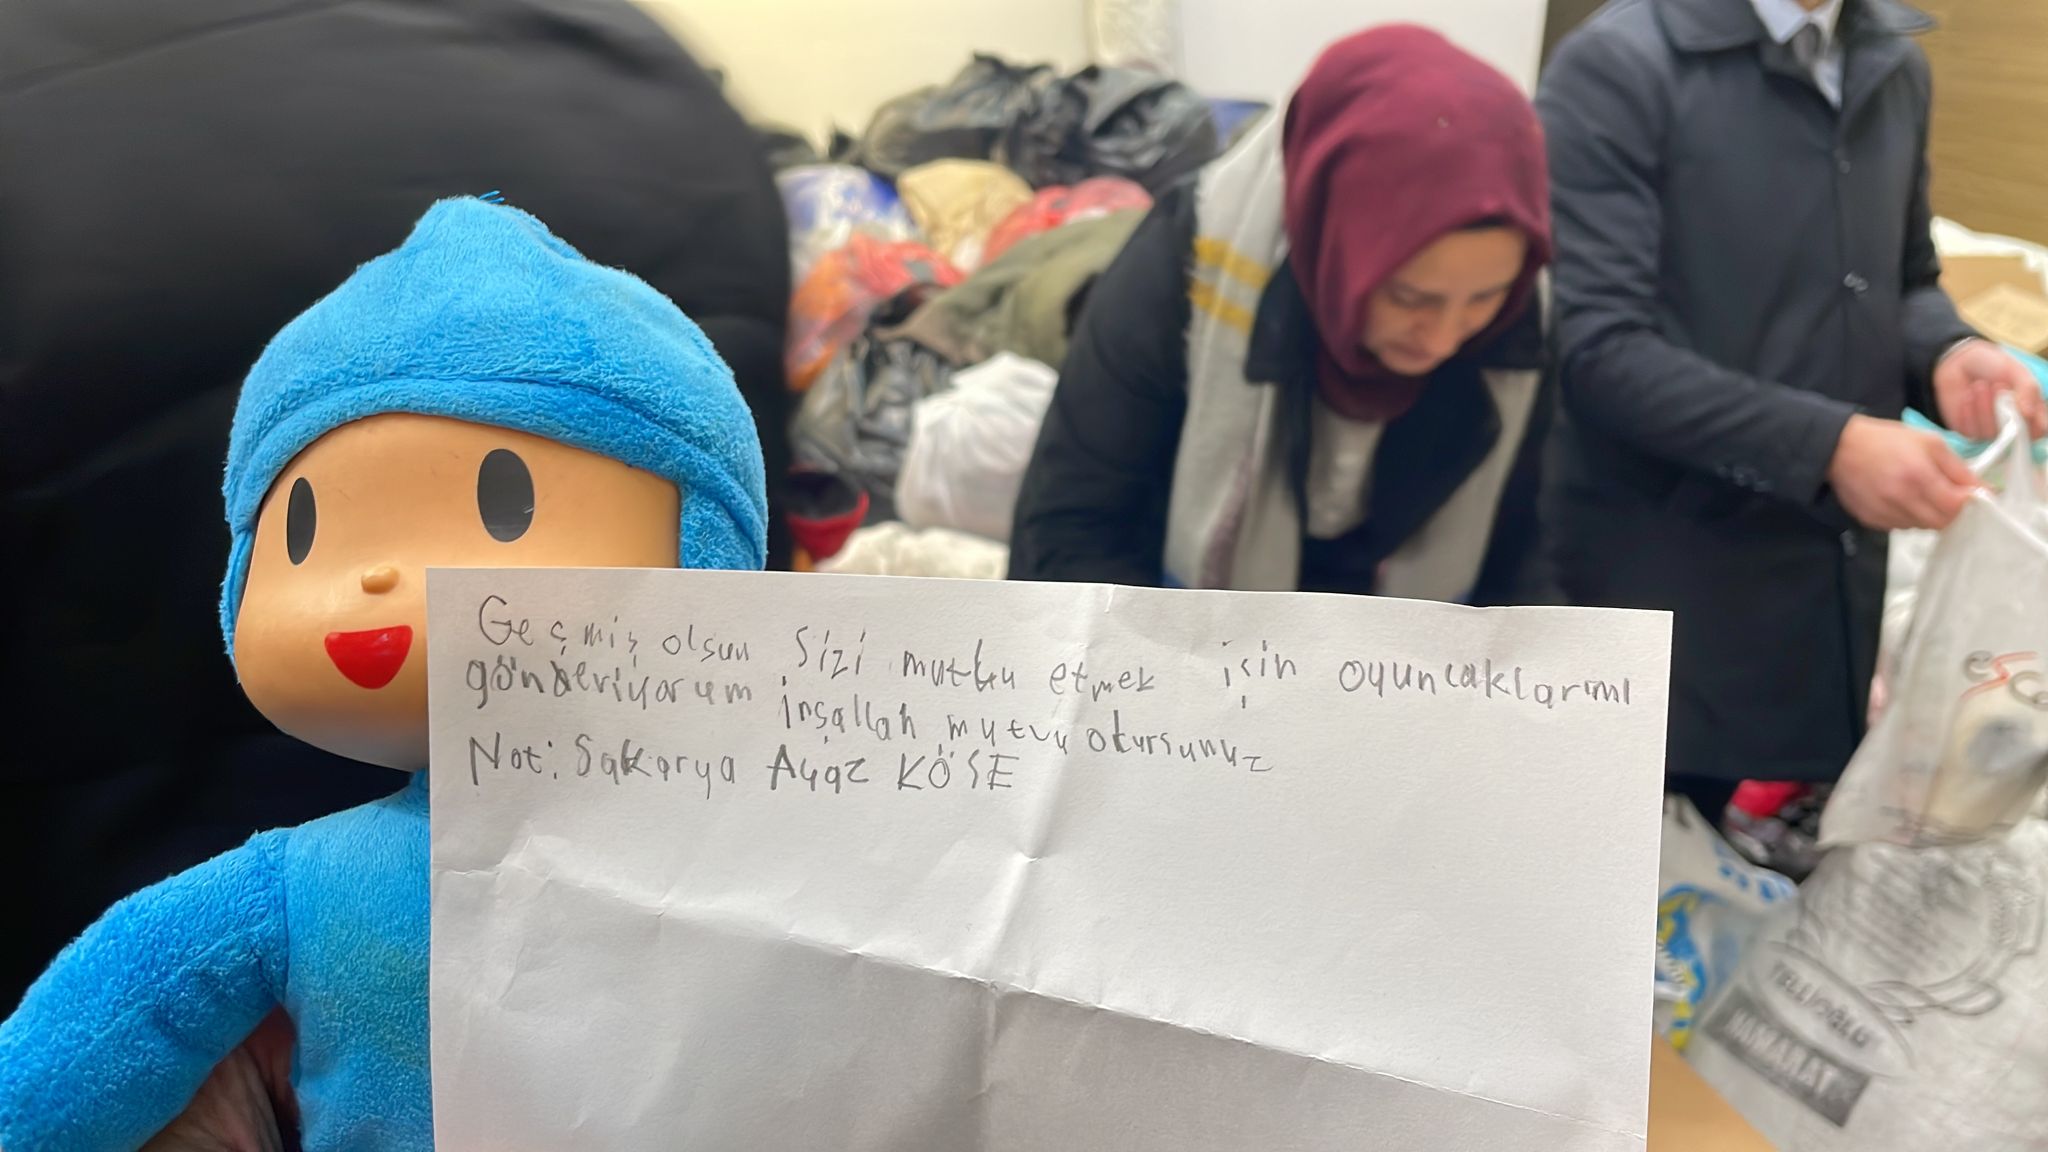 Geçmiş olsun sizi mutlu etmek için oyuncaklarımı
gönderiyorum inşallah mutlu olursunuz
Not: Sakarya Ayaz KÖSE
TELLİOĞLU